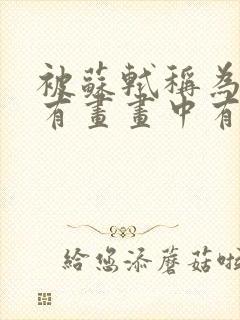 被蘇軾稱為
有畫畫中有
給您添蘑菇啦